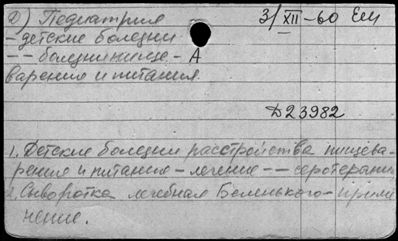 Д) Педиатрия 3/XII-60 Еги
- детские болезни
- - болезни пище- А
варения и питания
Д23982
1. Детские болезни расстройства пищева-
рения и питания - лечение - - серотерапия
2. Сыворотка лечебная Беленького - приме
нение.